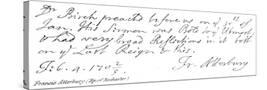 Dr. Birch preached before us on ye 30th of
Jan. His Sermon was Both very
& had very broad Reflections in it both
on ye Last Reign & this.
Fr. Atterbury
Francis Atterbury (Bp. of Rochester)